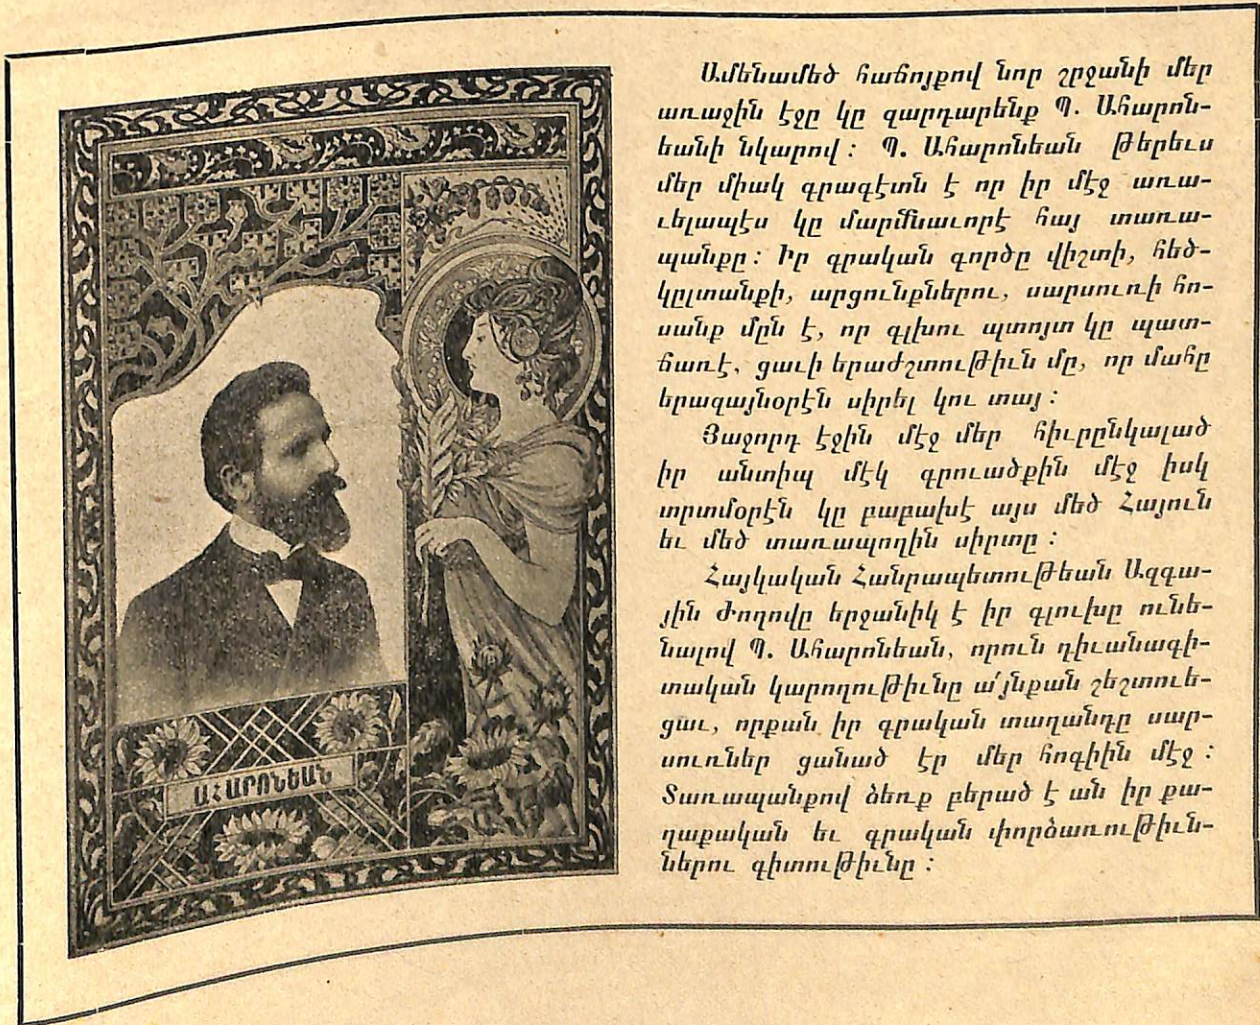 ԱՀԱՐՈՆԵԱՆ
Ամենամեծ հաճոյքով նոր շրջանի մեր
առաջին էջը կը զարդարենք Պ. Ահարոն-
եանի նկարով : Պ. Ահարոնեան թերեւս
մեր միակ գրագէտն է որ իր մէջ առա-
ւելապէս կը մարմնաւորէ հայ տառա-
պանքը : Իր գրական գործը վիշտի, հեծ-
կըլտանքի, արցունքներու, սարսուռի հո-
սանք մըն է, որ գլխու պտոյտ կը պատ-
ճառէ, ցաւի երաժշտութիւն մը, որ մահը
երազայնօրէն սիրել կու տայ :
Յաջորդ էջին մէջ մեր հիւրընկալած
իր անտիպ մէկ գրուածքին մէջ իսկ
տրտմօրէն կը բաբախէ այս մեծ Հայուն
եւ մեծ տառապողին սիրտը :
Հայկական Հանրապետութեան Ազգա-
յին Ժողովը երջանիկ է իր գլուխը ունե-
նալով Պ. Ահարոնեան, որուն դիւանագի-
տական կարողութիւնը ա՛յնքան շեշտուե-
ցաւ, որքան իր գրական տաղանդը սար-
սուռներ ցանած էր մեր հոգիին մէջ :
Տառապանքով ձեռք բերած է ան իր քա-
ղաքական եւ գրական փորձառութիւն-
ներու գիտութիւնը :